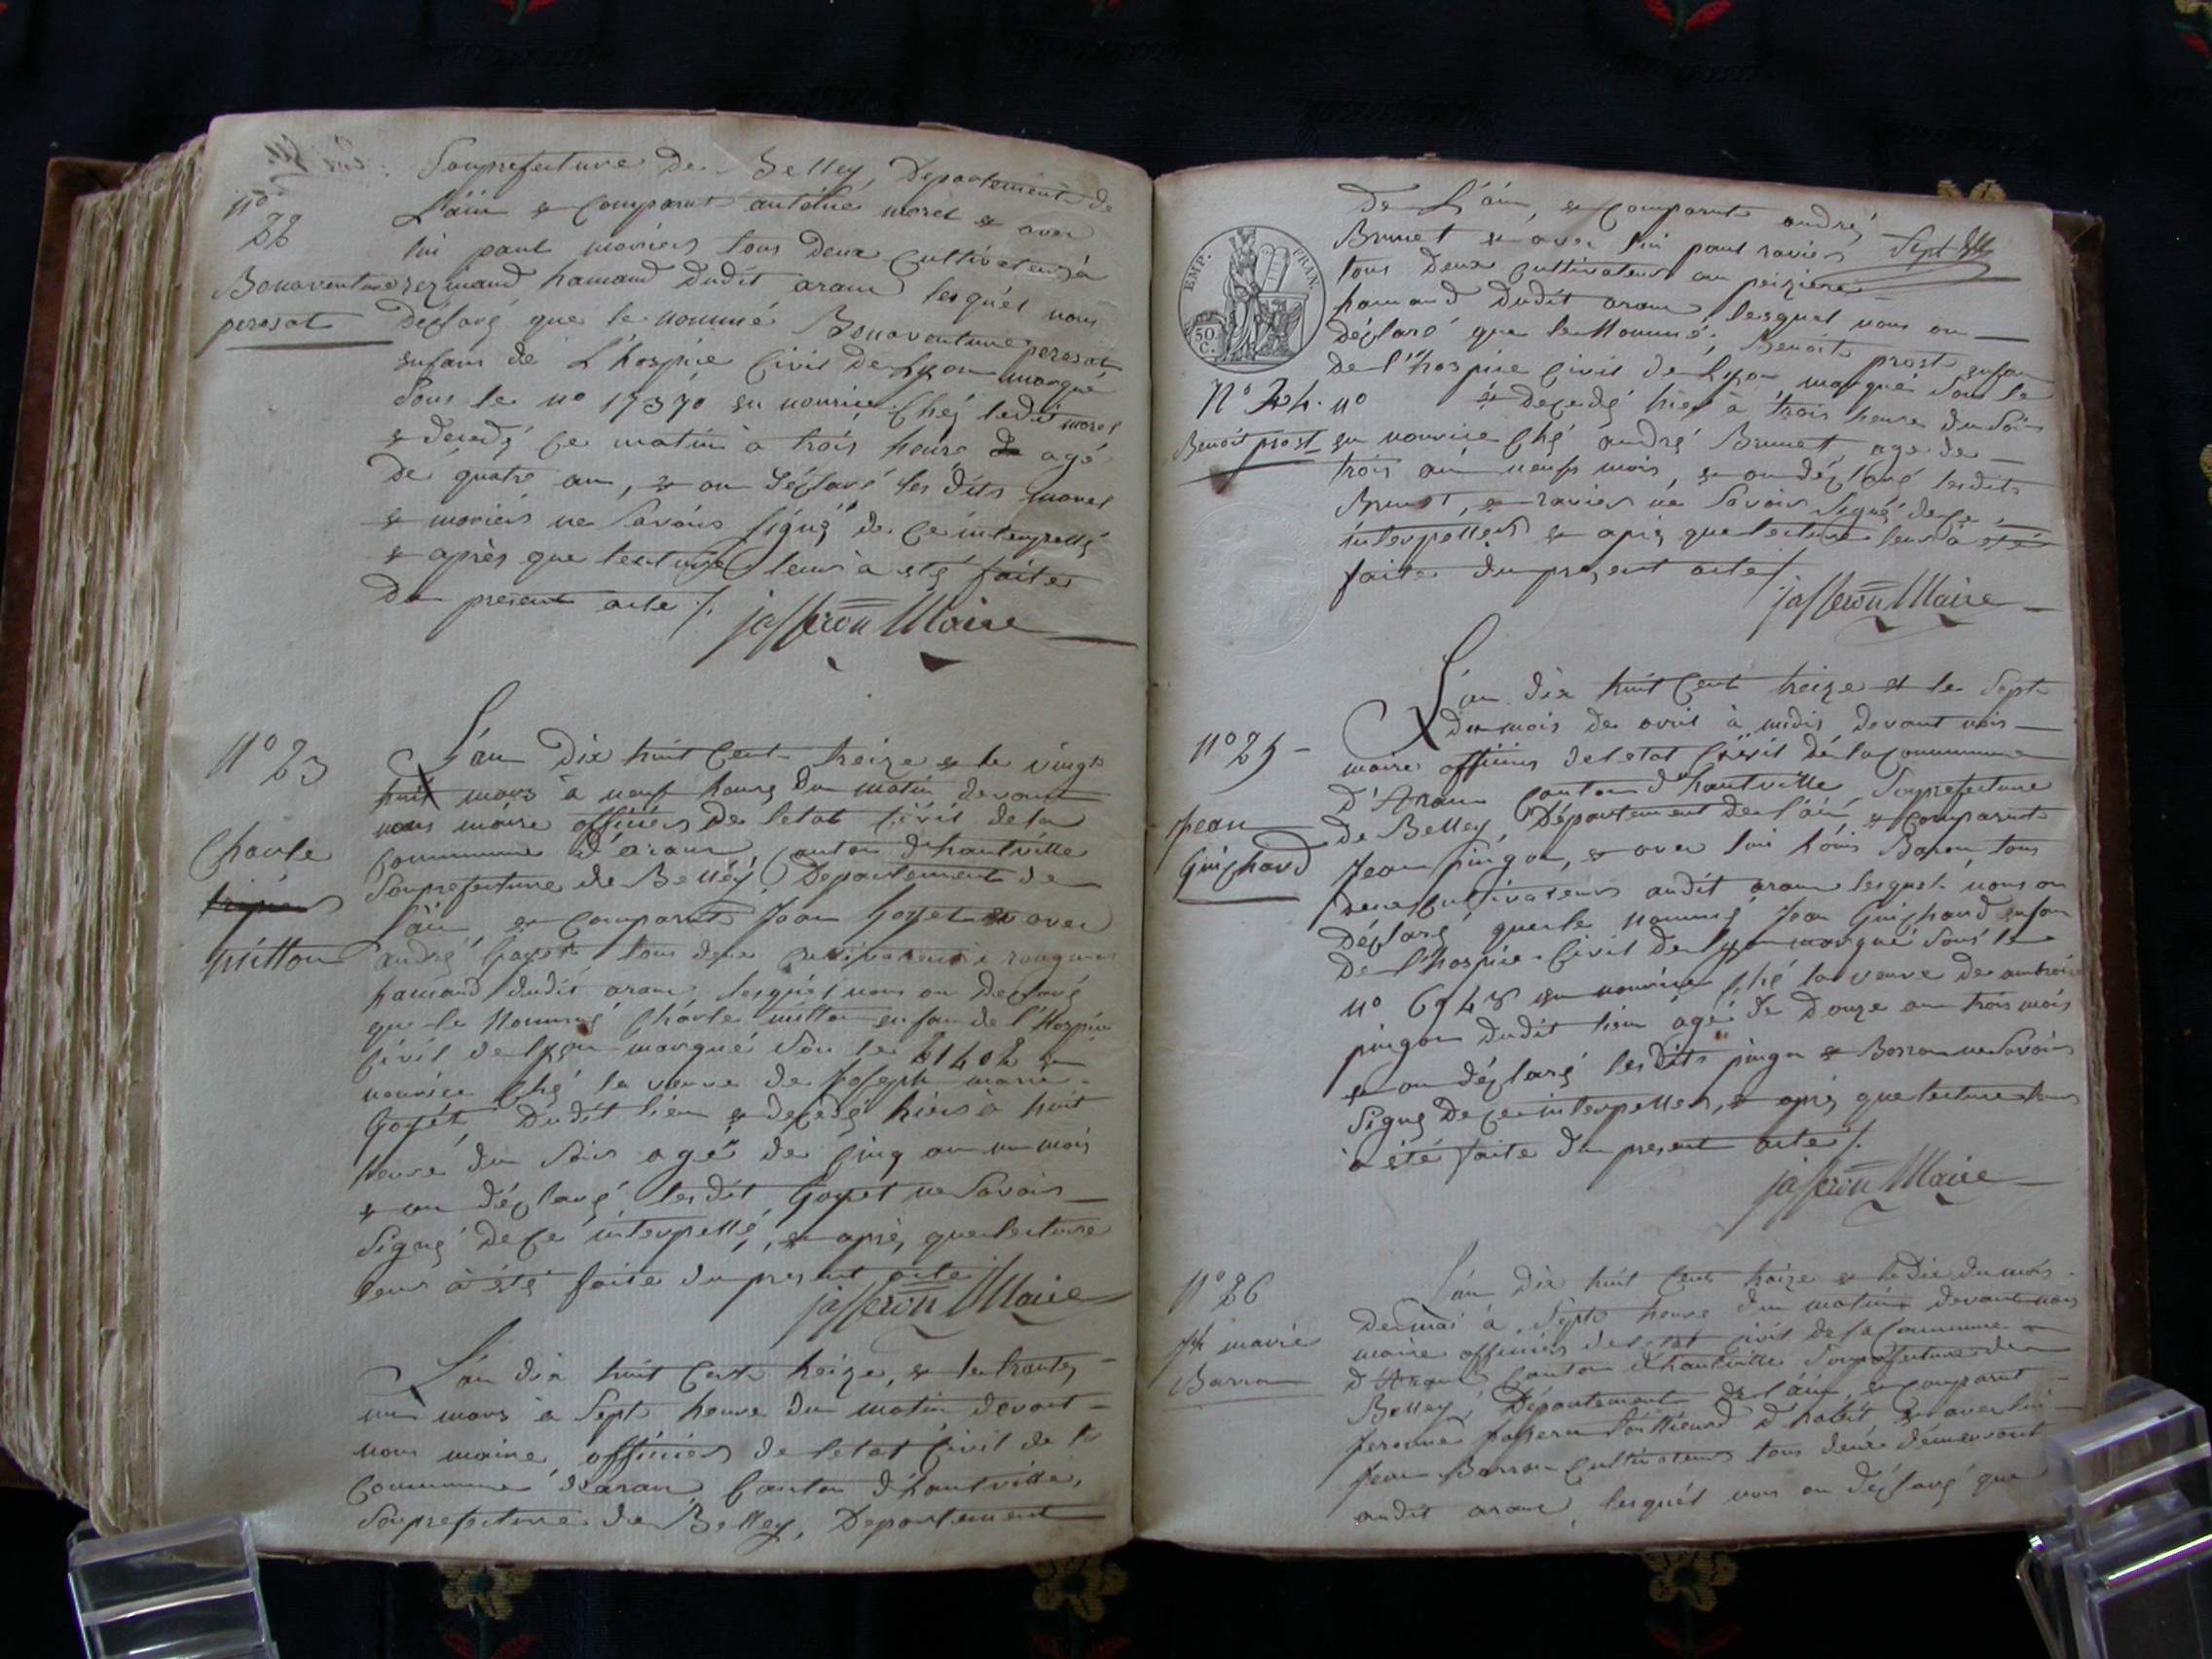 Souprefecture De Belley, Departement de
L'ain & Comparut antoine morel & avec
lui paul moriers tous Deux Cultivateurs à
rezinand hamand Dudit aranc lesquel nous
Déclaré que le nommé Bonaventure perosat
enfans de L'hospice Civil De Lyon marqué
Sous le no 17370 en nourice Chéz ledit morel
& decedé Ce matin à trois heure agé
De quatre an, & on Déclaré les dits morel
& moriers ne Savoir signé de Ce interpellé
& après que lecture leur à été faite
Du present acte /.
jasseron Maire
no
22
Bonaventure
perosat
L'an Dix huit Cent treize & le vingt
huit mars à neuf heures Du matin devant
nous maire officiers De letat Civil dela
Commune d'aranc Canton d'hautville
Souprefecture de Belley Departement de
l'ain & Comparut Jean goyet & avec
andré goyet tous deux Cultivateurs à
hamand dudit aranc lesquel nous on Declaré
que le Nommé Charle mitton enfan de l'Hospice
Civil de Lyon marqué Sou le 21402 en
nourice Ché la veuve de Joseph marie
Goyét Dudit lieu & decedé hiers à huit
heure du Soir agé de Cinq an un mois
& on déclaré lesdit Goyet ne Savoir
Signé de Ce interpellé, & après que lecture
leur à été faite du present acte
jasseron Maire
No 23
Charle
mitton
L'an dix huit Cent treize, & le trante
un mars à Sept heure du matin devant
nous maire officiers de letat Civil de la
Commune d'aranc Canton d'hautville,
Souprefecture de Belley, Departement
De L'ain, & Comparut andré
Brunet & avec lui paul ravier
tous Deux Cultivateurs au
hamand Dudit aranc lesquel nous on
Déclaré que le Nommé, Benoit prost enfan
De l'hospice Civil de Lyon marqué Sous le
no & decedé hier à trois heure du Soir
en nourice Ché andré Brunet, age de
trois an neufs mois, & on déclaré lesdits
Brunet, & ravier ne Savoir Signé de Ce
interpellers & après que lecture leur à été
faite du present acte /
jasseron Maire
EMP. FRAN.
50 C.
No 24.
Benoit prost
L'an dix huit Cent treize & le Sept
du mois de avril à midis devant nous
maire officiers de letat Civil de la Commune
D'Aranc Canton d'hautville, Souprefecture
de Belley, Département de l'ain, & Comparut
Jean pingon, & avec lui Baron, tous
deux Cultivateurs audit aranc lesquel nous on
Déclaré que le nommé Jean Guichard enfan
De l'hospice Civil de Lyon marqué Sous le
no 6948 en nourice Ché la veuve de
pingon Dudit lieu agé de Douze an trois mois
& on déclaré lesdits pingon & ne Savoir
Signé De Ce interpellers, & après que lecture leur
à été faite du present acte /.
jasseron Maire
No 25
Jean
Guichard
L'an Dix huit Cent treize & le Dix du mois
De mai à Sept heure du matin devant nous
maire officiers de letat Civil de la Commune
D'Aranc Canton d'hautville Souprefecture de
Belley, Département de l'ain, & Comparut
d'habit, & avec lui
Jean Barron Cultivateur tous deux demeurant
audit aranc, lesquél nous on déclaré que
No 26
marie
Barron